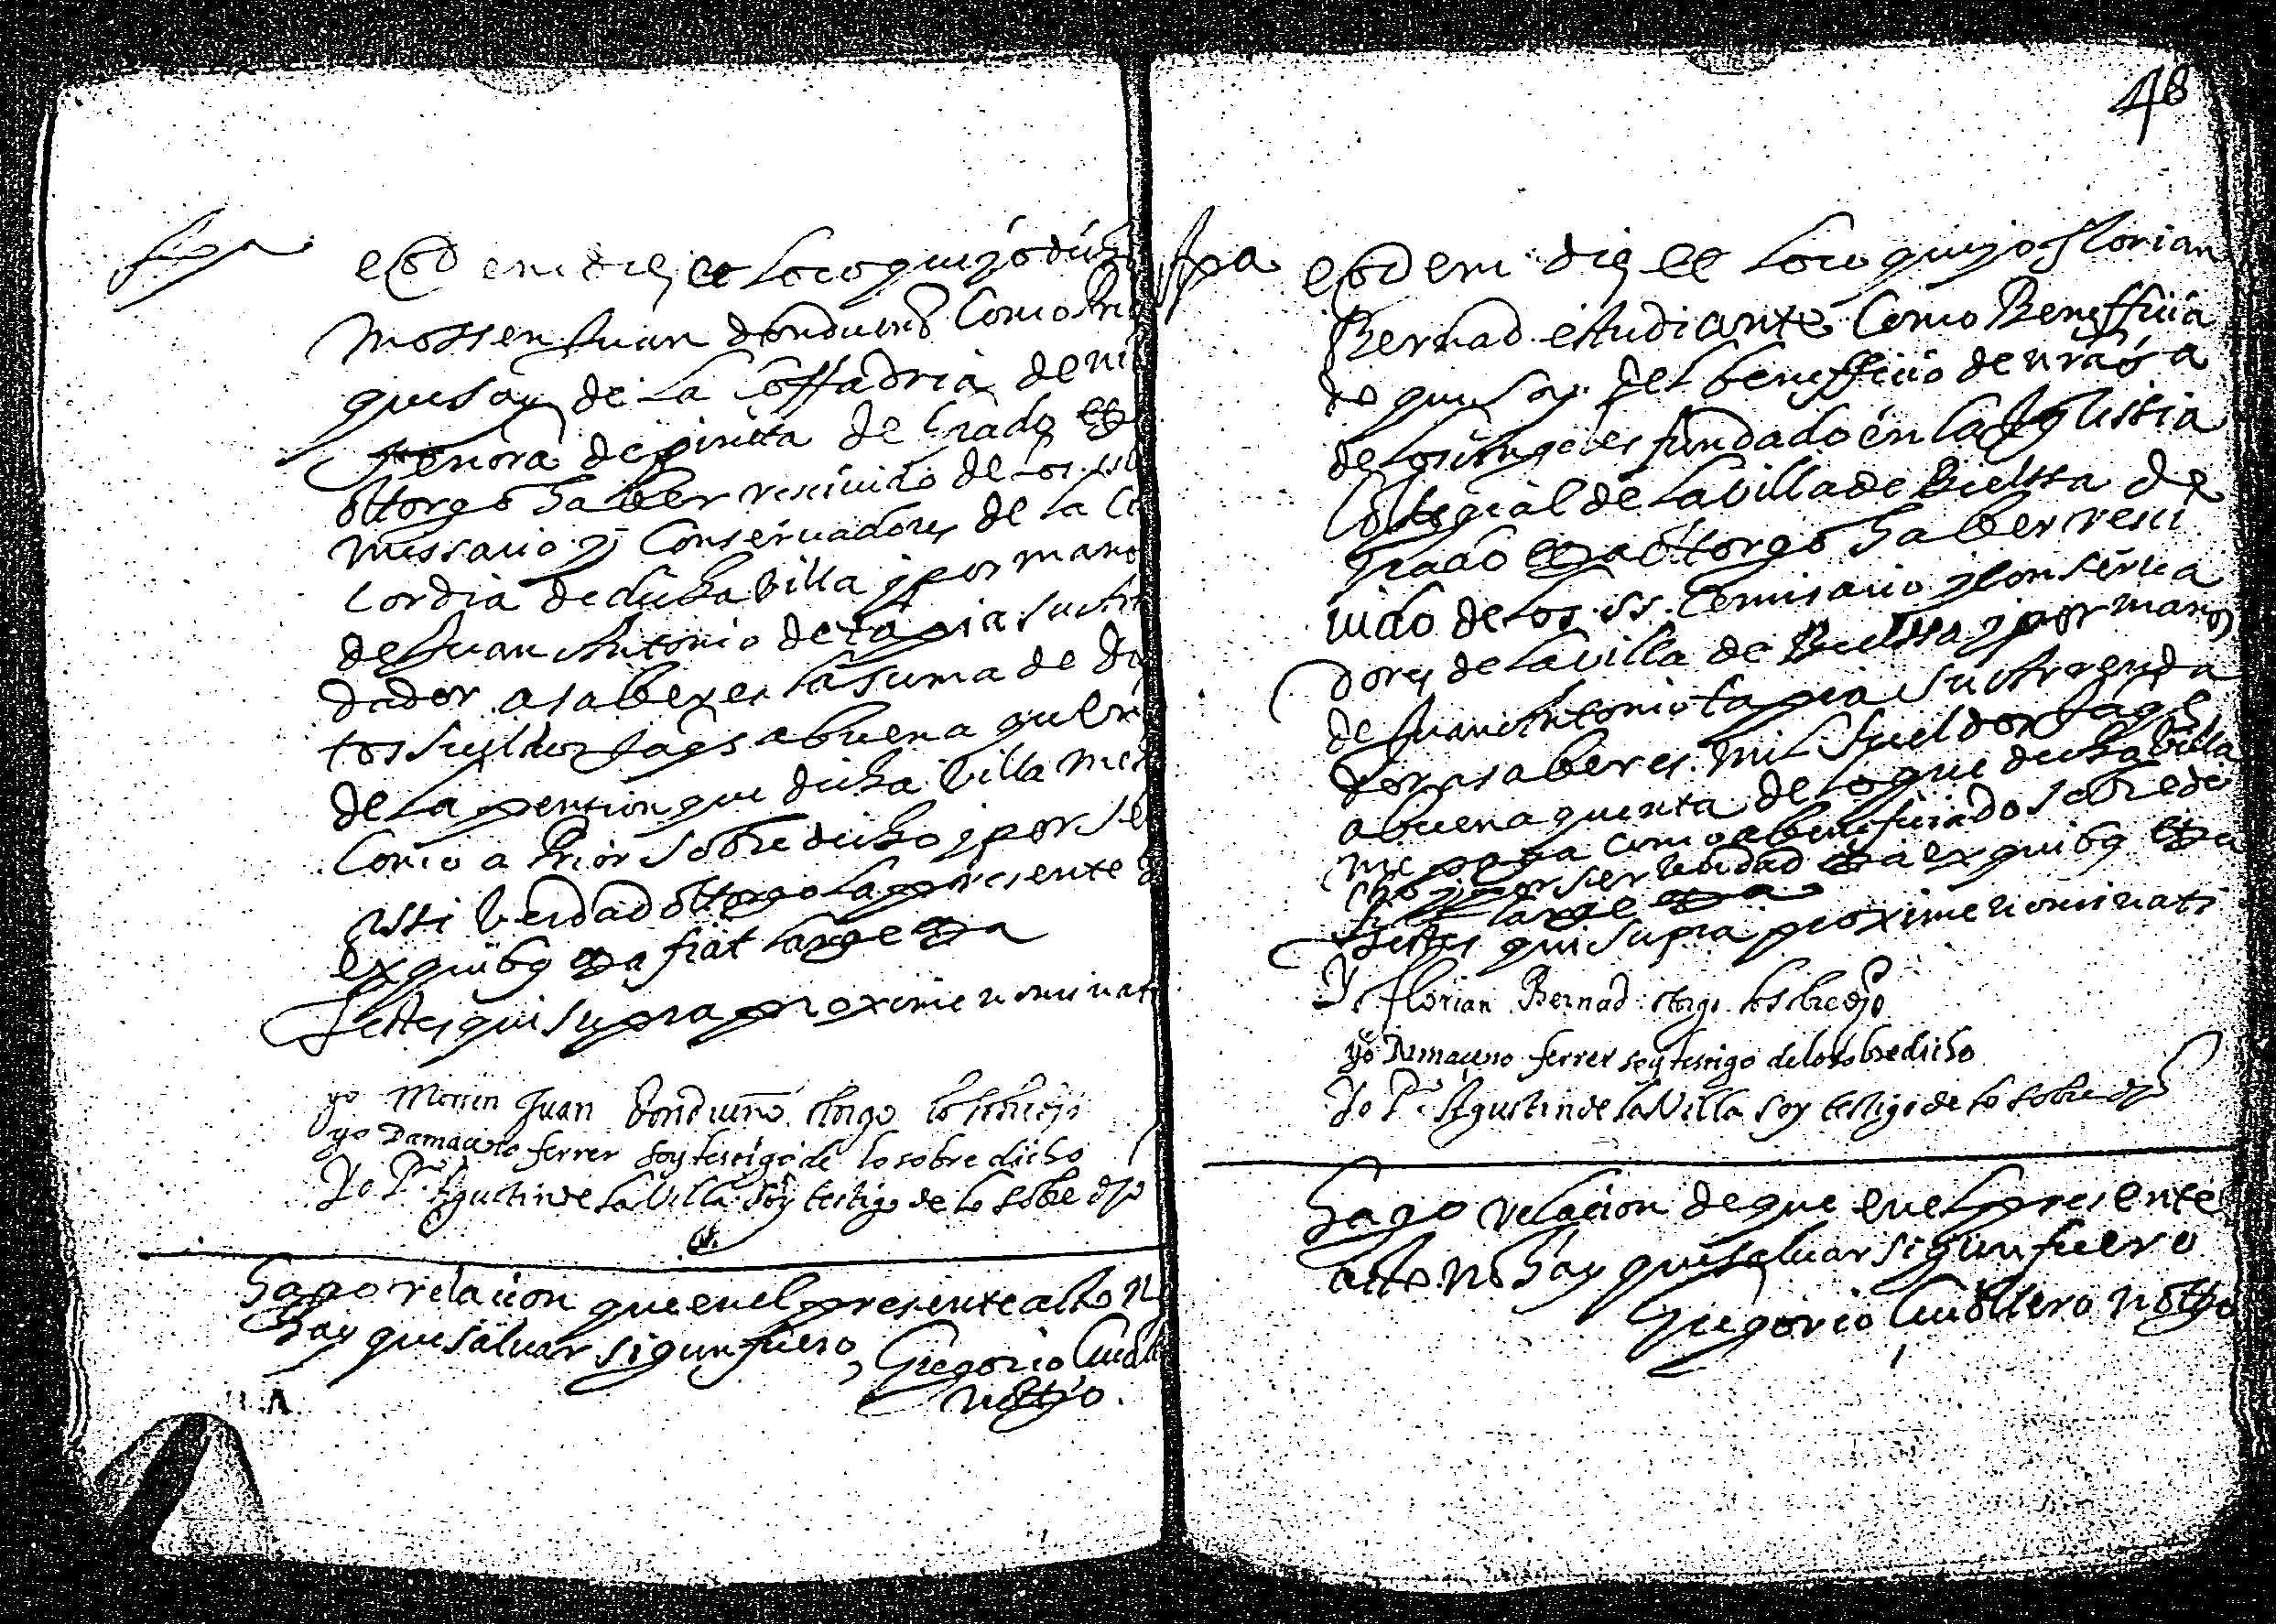 eod em die et loco que yo dich
Mossen Juan donduerō Como Pri
que soy de la Coffadria de nr̃a
senora de pineta de Grado etca
ottorgo haber resciuido de los
missario y Conseruadores de la Con
cordia de dicha Villa y por mano
de Juan Antonio de tapia su Arre
dador assaber es la suma de
tos sueldos Jaqs a buena quen
de la pension que dicha Villa me
Como a Prior sobredicho y por se
assi berdad ottorgo la presente
ex quibq etca fiat large etca
Testes qui supra proxime nominati
yo Mossen Juan donduerō otorgo lo sobredjo
yo Damaceno ferrer soy testigo de lo sobre dicho
Yo P. Agustin de la Villa soy testigo de lo sobre djo
hago relacion que en el presente acto no
hay que saluar sigun fuero, Gregorio Cuoll
nottro.
48
fpa eod em die et loco que yo Florian
Bernad estudiante Como Beneficia
do que soy del beneficio de nrã sa
de los Angeles fundado en la Iglissia
Collegial de la villa de Bielssa de
grado etca ottorgo haber resci
uido de los ss. Comisario y Conserua
dores de la villa de Bielssa y por manos
de Juan Antonio tapia su Arrenda
dor assaber es mil sueldos Jaqs
a buena quenta de lo que dicha Villa
me paga como a beneficiado sobre di
cho y por ser berdad etca ex quibq etca
fiat large etca
Testes qui supra proxime nominati
Yo florian Bernad otorgo lo sbredjo
yo Damaceno ferrer soy testigo de lo sobredicho
Yo P. Agustin de la Villa soy testigo de lo sobre djo
hago relacion de que en el presente
acto no hay que saluar sigun fuero
Gregorio Cuollero nottro